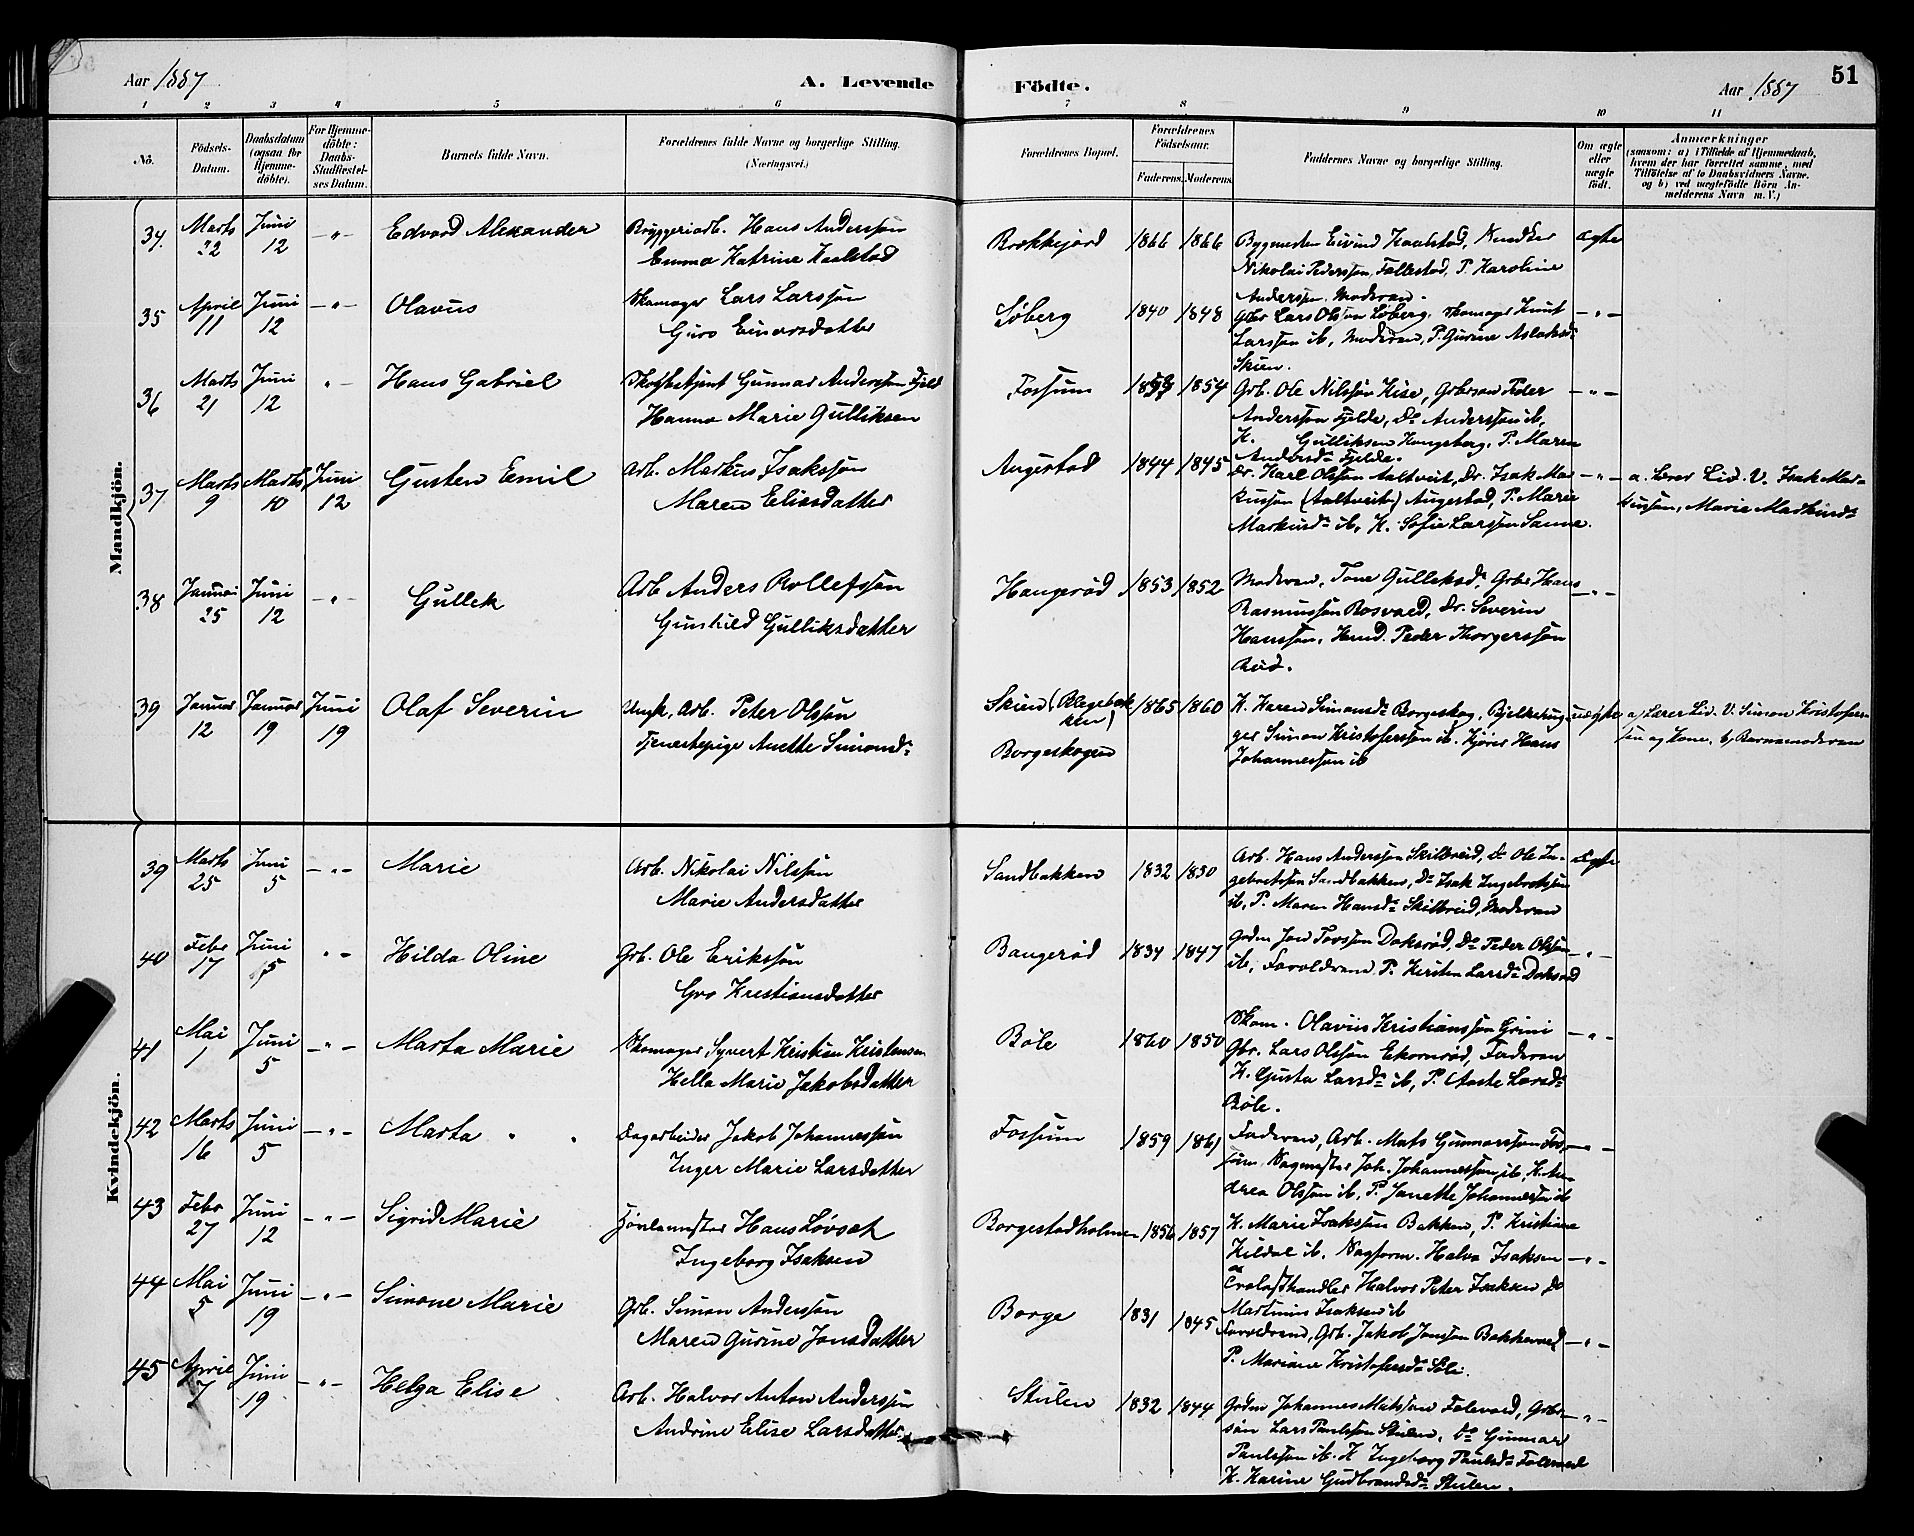 Aar 1887
A. Levende
Födte.
Aar 1887
51
1 2 3 4 5 6 7 8 9 10 11
No.
Födsels-
Datum.
Daabsdatum
(ogsaa for
Hjemme-
döbte).
For Hjemme-
döbte:
Daabs-
Stadfæstel-
ses Datum.
Barnets fulde Navn.
Forældrenes fulde Navne og borgerlige Stilling.
(Næringsvei.)
Forældrenes Bopæl.
Forældrenes
Födselsaar.
Faderens. Moderens.
Faddernes Navne og borgerlige Stilling.
Om ægte
eller
uægte
födt.
Anmærkninger
(saasom: a) i Tilfælde af Hjemmedaab,
hvem der har forrettet samme, med
Tilföielse af to Daabsvidners Navne.
og b) ved uægtefödte Börn An-
melderens Navn m. V.)
Mandkjön.
34. Marts 22 Juni 12 — " — Edvard Alexander
Bryggeriarb. Hans Anderssøn
Emma Katrine Haalstad
Brekkejord 1866 1866
Bygmester Eivind Haalstad,
Nikolai Pederssøn, Follestad, P. Karoline
Anderssen, Moderen.
ægte
35 April 11 Juni 12 — " — Olavus
Skomager Lars Larssøn
Guro Einarsdatter
Søberg 1840 1848
Gbr Lars Olssøn Søberg, Skomager Knut
Larssøn ib, Moderen, P. Gurine Aslaksd.
Skien.
— " —
36 Marts 21 Juni 12 " — Hans Gabriel
Gunnar Anderssøn Fjeld
Hanna Marie Gulliksen
Fossum 1854
Grb. Ole Nilssøn Kise, Grbrsøn Peder
Anderssøn Fjelde, Do Anderssøn ib,
K. Gulliksen Kongsberg, P. Maren
Andersd. Fjelde.
— " —
37 Marts 9 Marts 10 Juni 12 Gusten Emil
Arb. Markus Isakssøn
Maren Elisdatter
Augestad 1844 1845
Gr. Karl Olssøn Aaltveit, Gr. Isak Mar-
kussøn (Aaltveit) Augestad, P. Marie
Markusd. ib, K. Sofie Larssøn Sanne.
— " —
a. Lærer Lid. V. Isak Mar-
kussøn, Marie Markusd.
38 Januar 25 Juni 12 — " — Gullek
Arb Anders Rollefssøn
Gunhild Gulliksdatter
Haugerød 1853 1852
Moderen, Tone Gulleksd., Grbr Hans
Rasmussøn Rosvald, Gr. Severin
Hanssøn, Peder Thorgerssøn
Rød.
— " —
39 Januar 12 Januar 19 Juni 19 Olaf Severin
Ungk. Arb. Peter Olssøn
Tjenestepige Anette Simonsd.
Skien (Blegebak-
ken)
Borgeskogen 1865 1860
K. Karen Simonsd. Borgeskog, Bjelkehug-
ger Simon Kristoferssøn ib. Kjører Hans
Johannessøn ib
uægte
a, Lærer Lid. V. Simon Kristofers-
søn og Kone. b, Barnemoderen
Kvindekjön.
39 Marts 25 Juni 5 — " — Marie
Arb. Nikolai Nilssøn
Marie Andersdatter
Sandbakken 1832 1850
Arb. Hans Anderssøn Skilbreid, Do Ole In-
gebretssøn Sandbakken, Do Isak Ingebretssøn
ib, P. Maren Hansd. Skilbreid, Moderen
ægte
40 Febr 17 Juni 5 " — Hilda Oline
Grb. Ole Erikssøn
Gro Kristiansdatter
Baugerød 1834 1847
Grdm Jon Torssøn Doksrød, Do Peder Olssøn
ib, Forældrene P. Kirsten Larsd. Doksrød
— " —
41 Mai 1 Juni 5 — " — Marta Marie
Skomager Syvert Kristian Kristensen
Hella Marie Jakobsdatter
Bøle 1860 1850
Skom. Olaviis Kristianssøn Grini
Gbr. Lars Olssøn Ekornrød, Faderen
K. Gusta Larsd. ib, P. Aaste Larsd.
Bøle.
— " —
42 Marts 16 Juni 5 — " — Marta " "
Dagarbeider Jakob Johannessøn
Inger Marie Larsdatter
Fossum 1859 1861
Faderen, Arb. Mats Gunnarssøn Fos-
sum, Joh. Johannessøn ib, K. An-
drea Olssøn ib, P. Janette Johannessøn ib
— " —
43 Febr 27 Juni 12 — " — Sigrid Marie
Hans Løvseth
Ingeborg Isaksen
Borgestadholmen 1856 1857
K. Marie Isakssøn Bakken, P. Kristiane
Kildal ib, Halvor Isaksen
Halvor Peter Isaksen Do
Martinius Isaksen ib
— " —
44 Mai 5 Juni 19 — " — Simone Marie
Grb. Simon Anderssøn
Maren Gurine Jonsdatter
Borge 1831 1845
Forældrene, Grb. Jakob Jonssøn Bakkevold
P. Mariane Kristofersd. Søli.
— " —
45 April 7 Juni 19 — " — Helga Elise
Arb. Halvor Anton Anderssøn
Andrine Elise Larsdatter
Stulen 1832 1844
Grdm Johannes Matssøn Folevord, Grbr-
søn Lars Paulssøn Stulen, Do Gunnar
Paulssøn ib. K Ingeborg Paulsd. Folevord
K. Karine Gudbrandsd. Stulen.
— " —